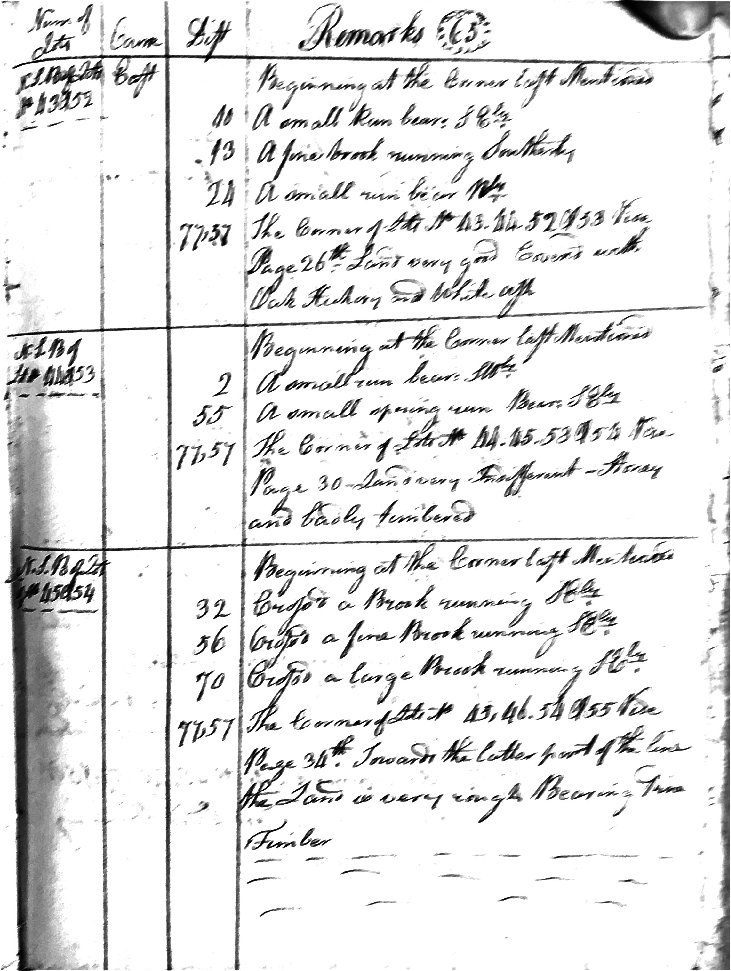 Num. of Lots Cours Dist Remarks 63
N.L.B of Lots East Beginning at the Corner last Mentioned
No 43 & 52
10 A small Run bears SEly
13 A fine brook running Southerly
24 A small run bears
77,57 The Corner of Lots No 43.44.52 & 53 Vide
Page 26th Land very good Coverd with
Oak Hickory and White ash
N L B of Beginning at the Corner last Mentioned
Lots 44 & 53
2 A small run bears SWly
55 A small spring run Bears SEly
77,57 The Corner of Lots No 44.45.53 & 54 Vide
Page 30 Land very Indifferent - Stoney
and badly timbered
N.L.B of Lots Beginning at the Corner last Mentioned
No 45 & 54
32 Crossd a Brook running SEly
56 Crossd a fine Brook running SEly
70 Crossd a large Brook running SEly
77,57 The Corner of Lots No 45,46.54 & 55 Vide
Page 34th. Towards the latter part of the line
the Land is very rough Bearing
Timber